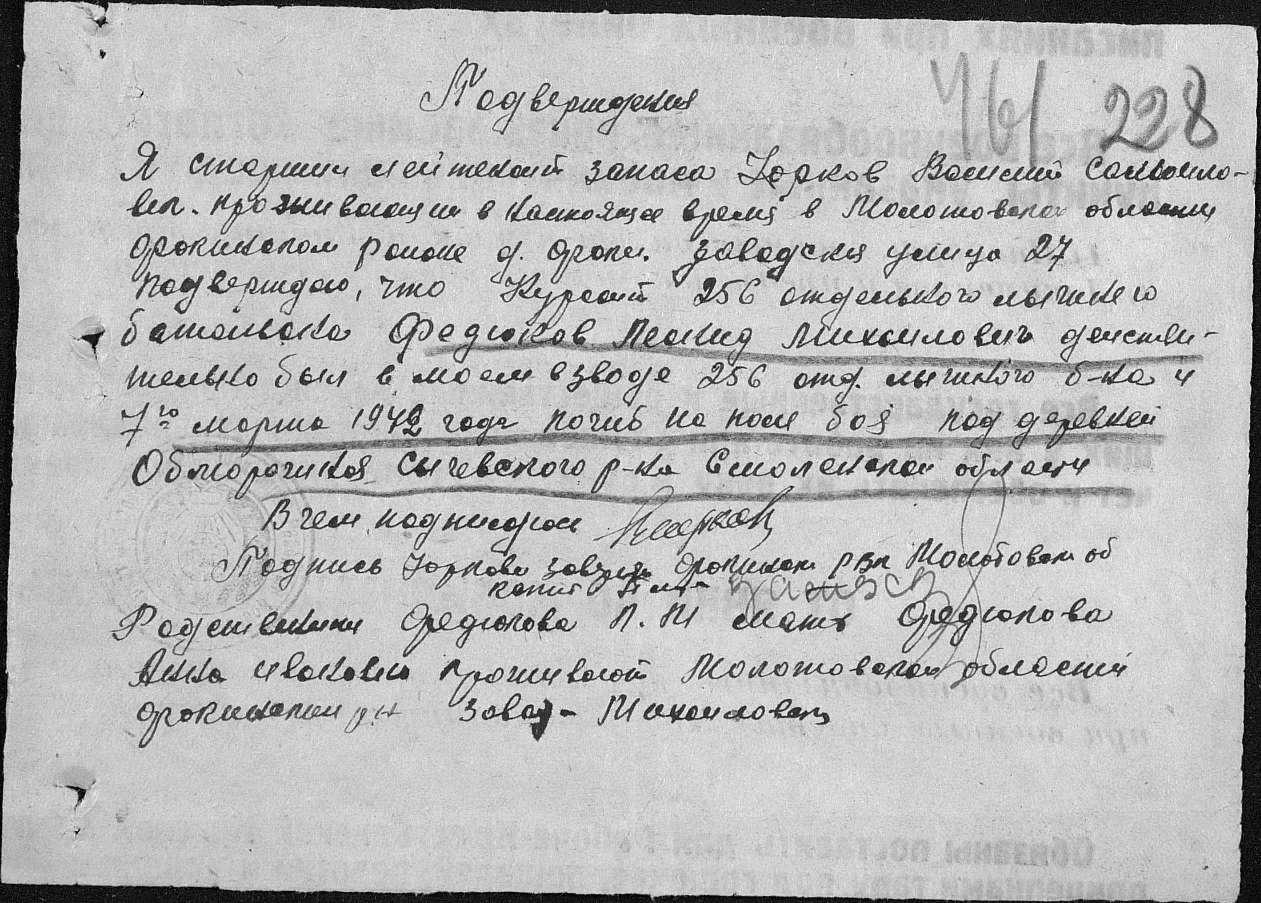 161 228
Подверждения
Я старший лейтенант запаса Юрков Василий Самойло-
вич. проживающий в настоящее время в Молотовской области
Фокинском районе д. Фоки. Заводская улица 27
подверждаю, что Курсант 256 отдельного лыжного
батальона Федюков Леонид Михайлович действи-
тельно был в моем взводе 256 отд. лыжного б-на и
7го марта 1942 года погиб на поле боя под деревней
Сычевского р-на Смоленской области
В чем подписуюсь
Подпись Юркова заверяю Фокинский РВК Молотовской об
капит
Родственники Федюкова Л. М мать Федюкова
Анна Ивановна проживает Молотовской области
Фокинский рн завод Михайловск